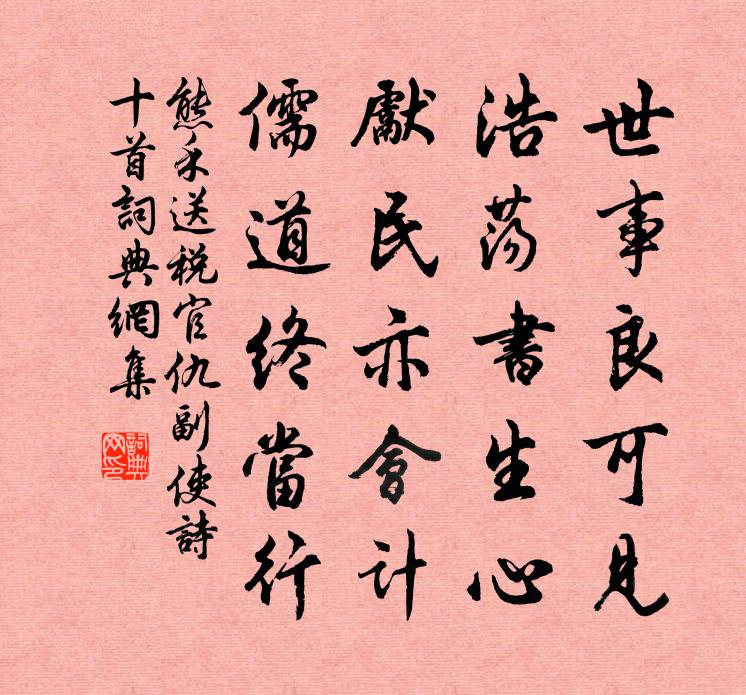 世事良可見
浩荡書生心
獻民亦會計
儒道終當行
熊禾送税官仇副使詩
十首詞典網集
詞典網印